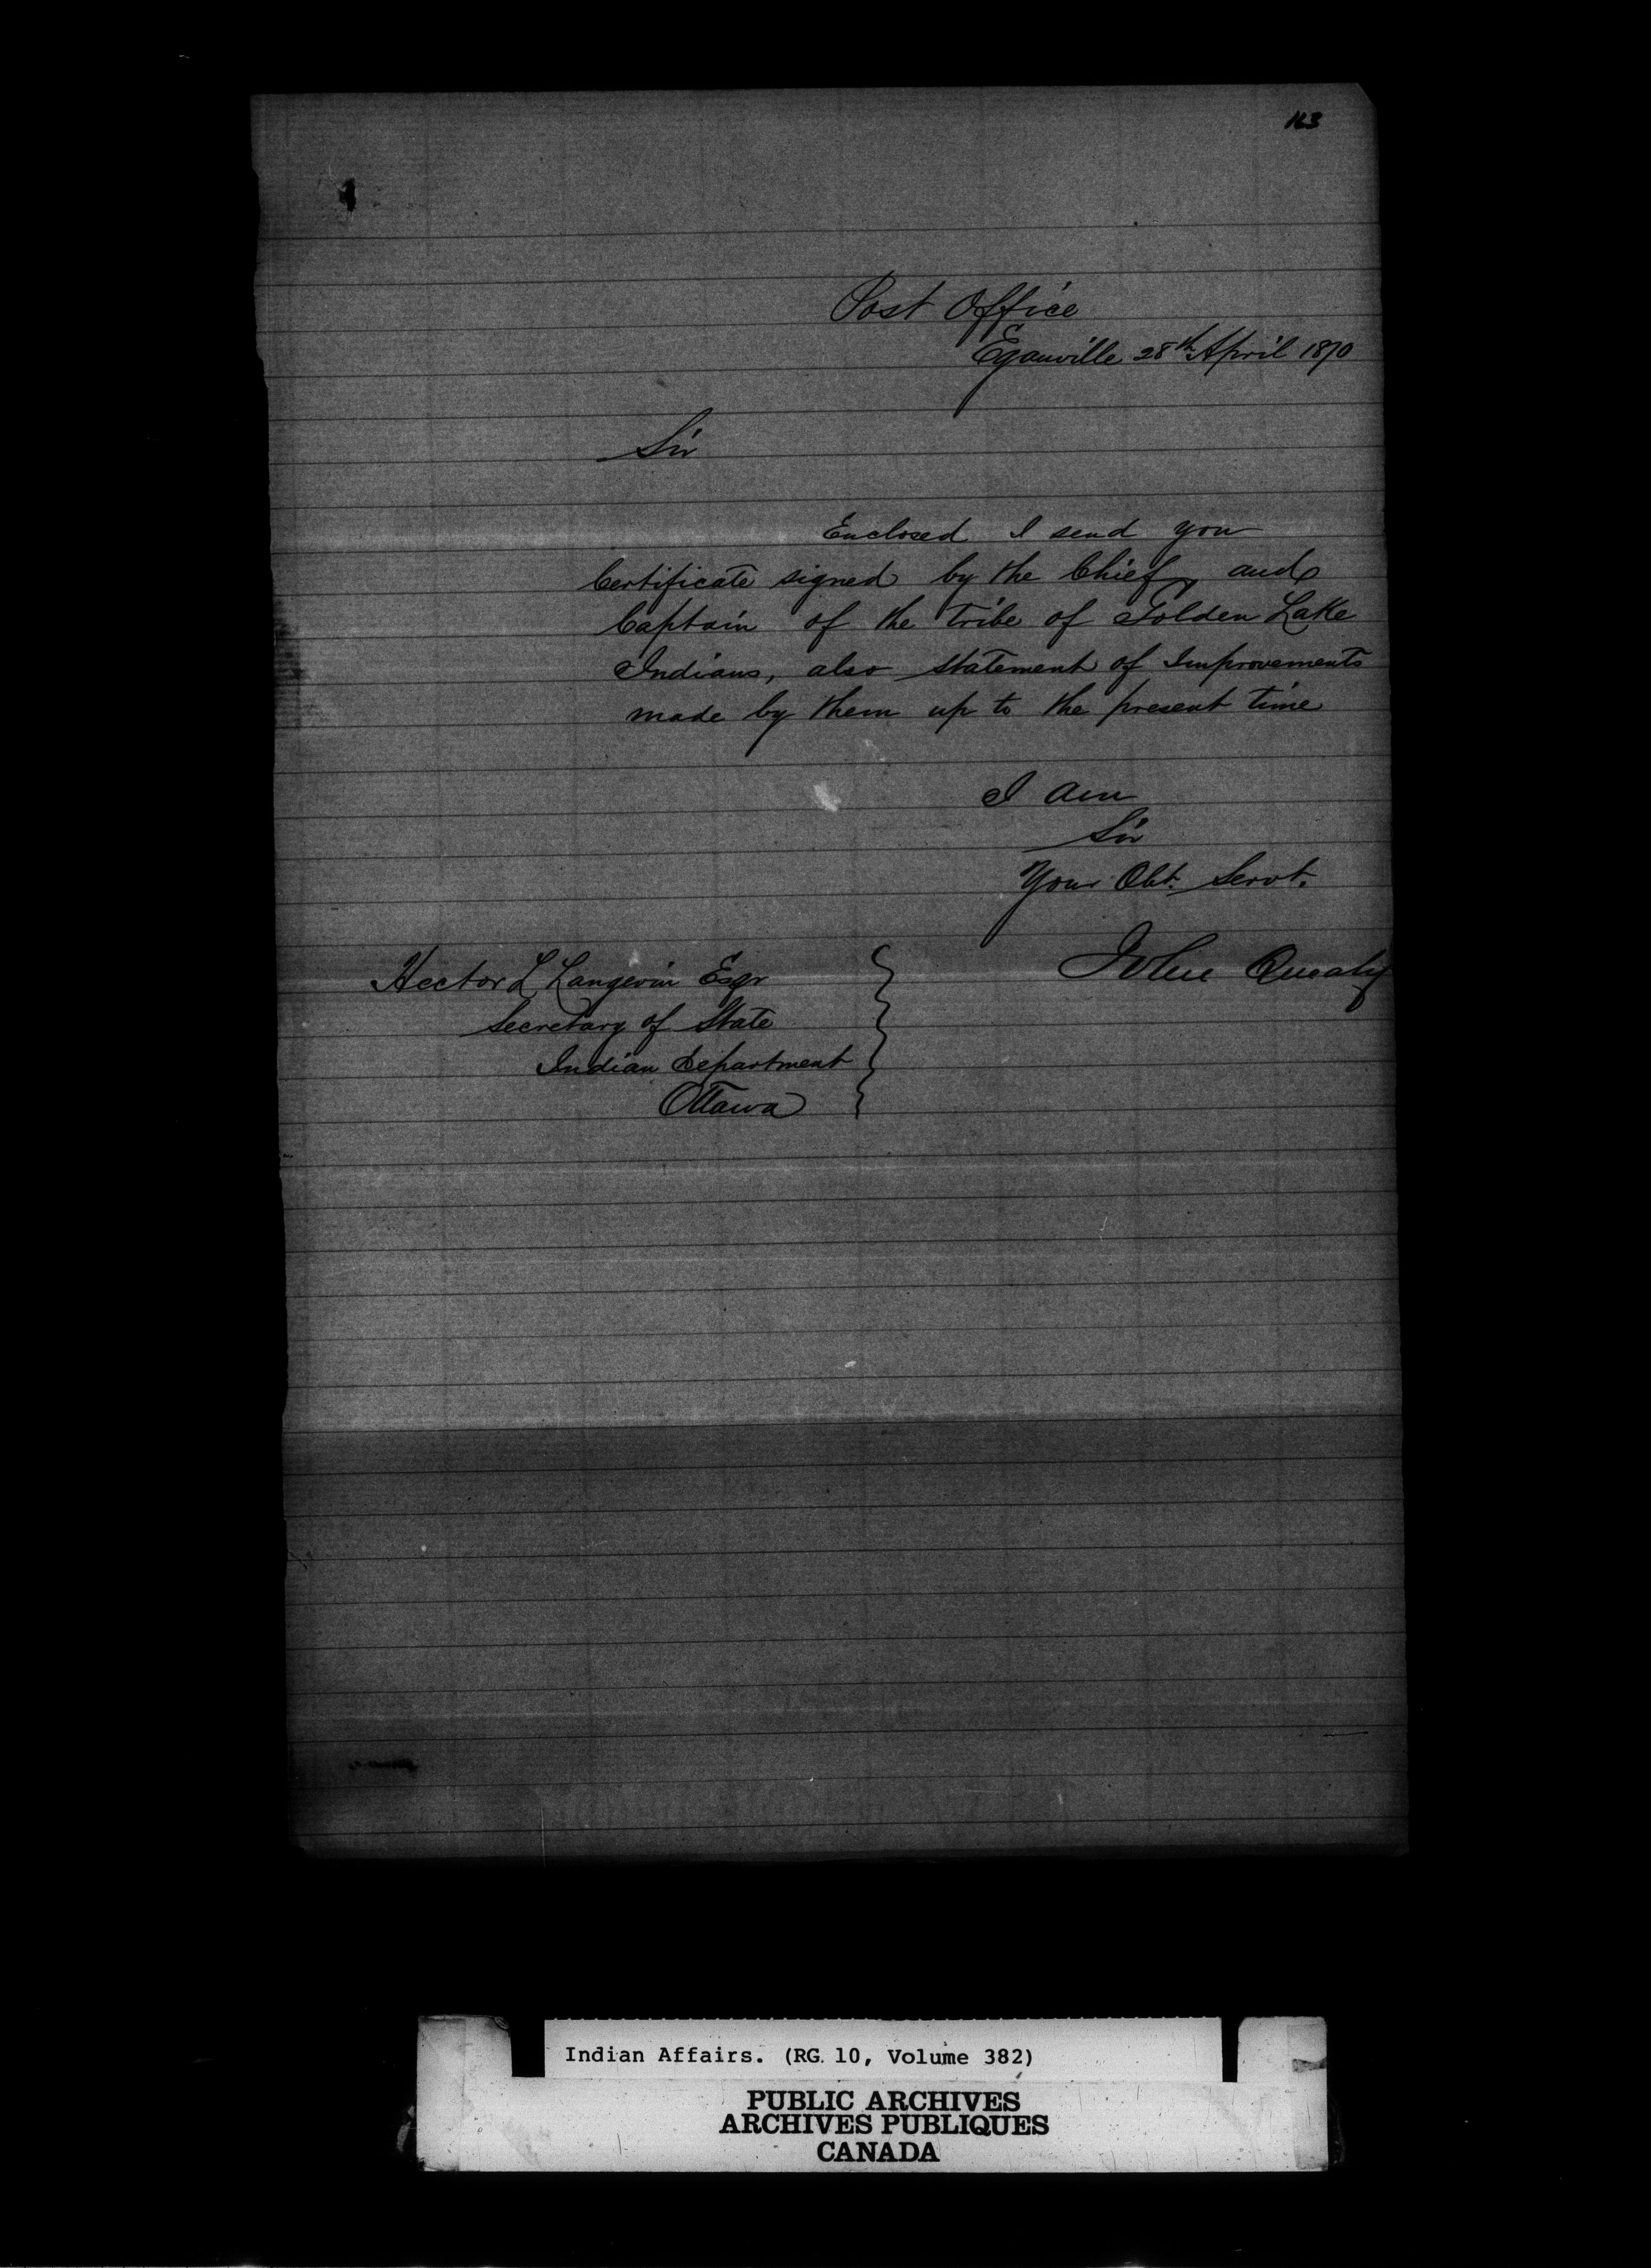 163
Post Office
Eganville 28th April 1870
Sir
Enclosed I send you
Certificate signed by the Chief and
Captain of the Tribe of Golden Lake
Indians, also statement of Improvements
made by them up to the present time
I am
Sir
Your Obt. Servt.
John Quealy
Hector L Langevin Esqr
Secretary of State
Indian Department
Ottawa
Indian Affairs. (RG 10, Volume 382)
PUBLIC ARCHIVES
ARCHIVES PUBLIQUES
CANADA